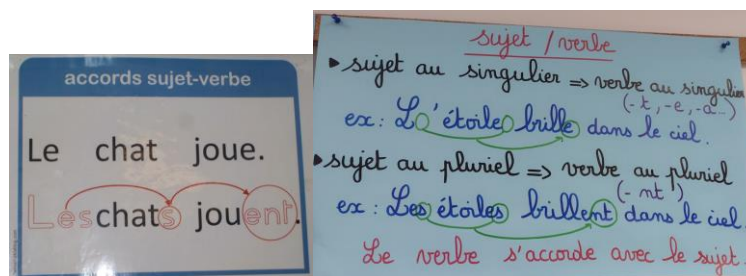 accords sujet-verbe
Le chat joue.
Les chats jouent.
sujet / verbe
▸ sujet au singulier ⇒ verbe au singulier
(-t, -e, -a...)
ex : L'étoile brille dans le ciel.
▸ sujet au pluriel ⇒ verbe au pluriel
(-nt)
ex : Les étoiles brillent dans le ciel.
Le verbe s'accorde avec le sujet.